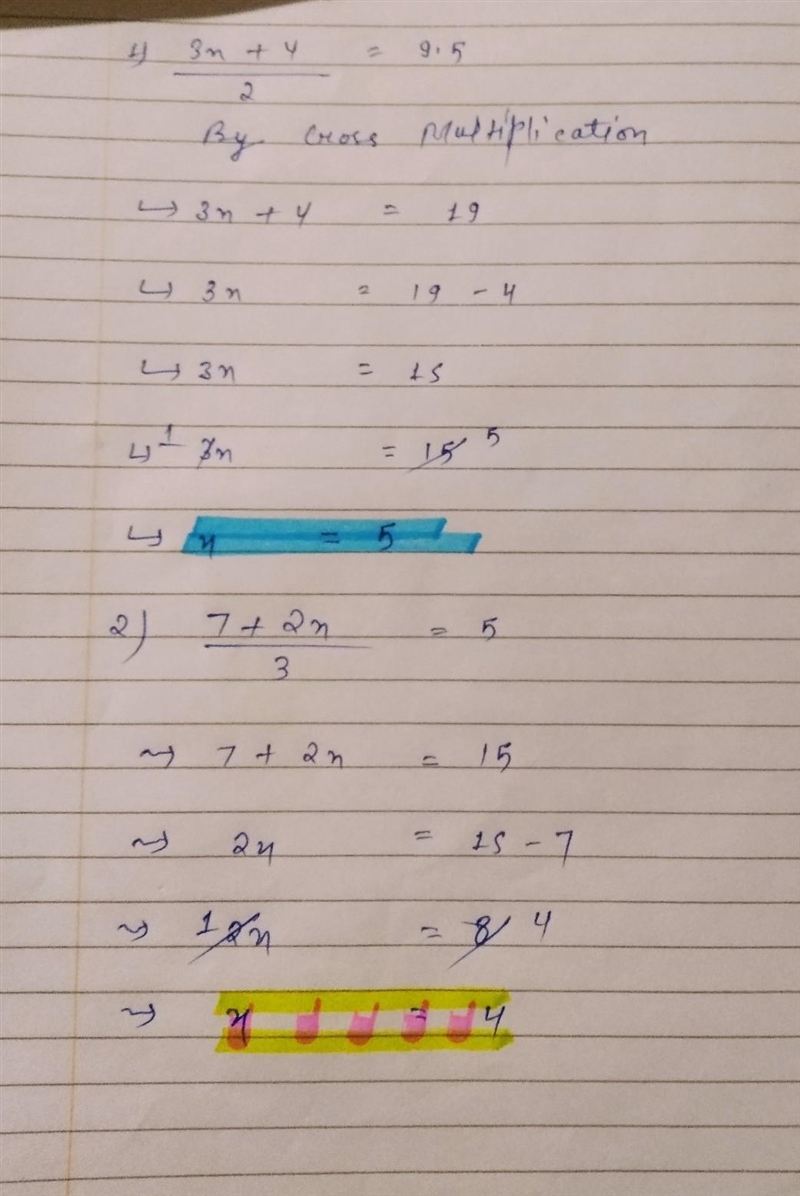 1) 3x + 4 = 9.5
2
By Cross Multiplication
↪ 3x + 4 = 19
↪ 3x = 19 - 4
↪ 3x = 15
↪ 1 3x = 15 5
↪ x = 5
2) 7 + 2x = 5
3
⇝ 7 + 2x = 15
⇝ 2x = 15 - 7
⇝ 1 2x = 8 4
⇝ x = 4